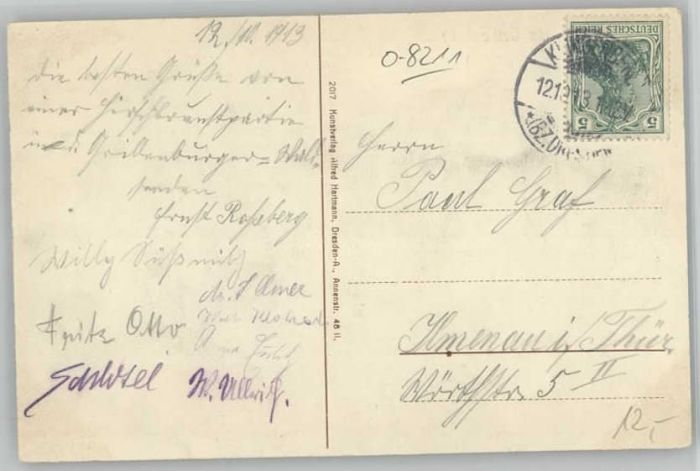 12./10. 1913
die besten Grüße von
einer Hirschbrunstpartie
in d. Grillenburger=Wald
senden
Ernst Roßberg
Willy Süßmilch
Fritz Otto
W. Ullrich.
2017 Kunstverlag Alfred Hartmann, Dresden-A., Annenstr. 48 II.
0-8211
DEUTSCHES REICH
5 5
12.10
(BZ.DRESDEN)
Herrn
Paul Graf
Ilmenau i/Thür.
Wörthstr. 5 II
12,-